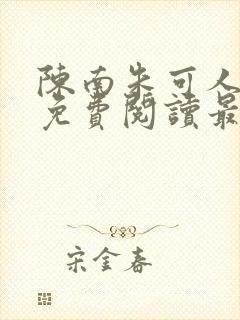 陳南朱可人
免費閱讀最
宋金春